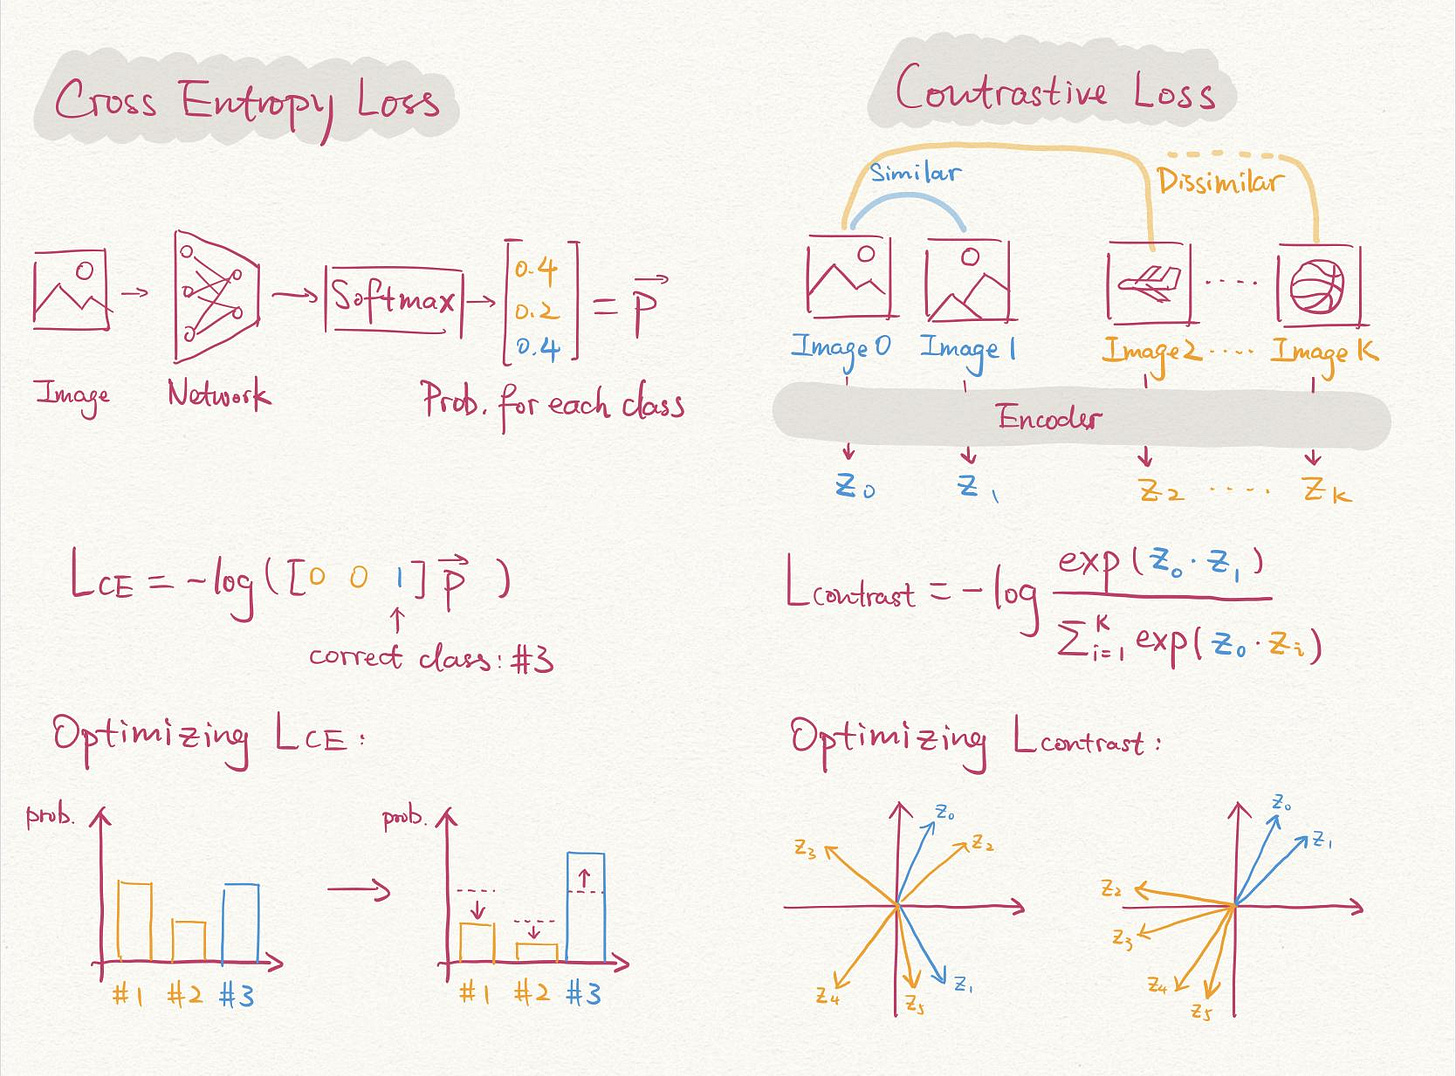 Cross Entropy Loss
Image
Network
Softmax
0.4
0.2
0.4
= p
Prob. for each class
L CE = -log ( [0 0 1] p )
correct class: #3
Optimizing L CE :
prob.
#1 #2 #3
prob.
#1 #2 #3
Contrastive Loss
Similar
Dissimilar
Image 0 Image 1 Image 2 ···· Image K
Encoder
z₀ z₁ z₂ ····· z K
L contrast = - log exp ( z₀ · z₁ ) / ∑ i=1 K exp ( z₀ · z i )
Optimizing L contrast :
z₀
z₂
z₃
z₄
z₅
z₁
z₀
z₁
z₂
z₃
z₄
z₅